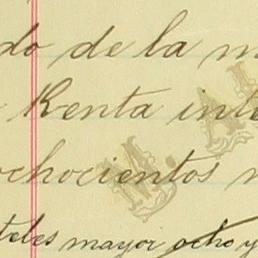 do de la m
Renta inte
ochocientos n
teles mayor ocho y